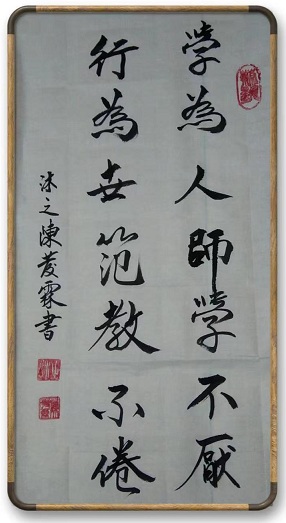 學為人師學不厭
行為世范教不倦
沐之陳茇霖書